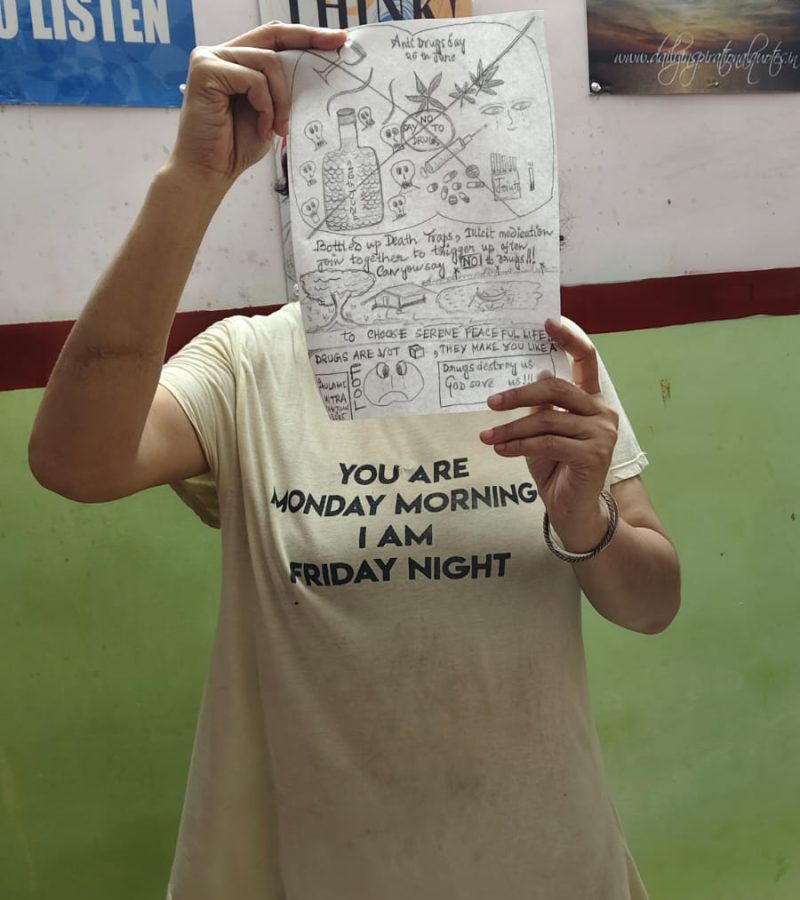 O LISTEN
THINK!
www.dailyinspirationalquotes.in
Anti Drugs day
26th June
SAY NO
TO
DRUGS
Joints
Bottled up Death Traps, Illicit medication
join together to trigger up often
Can you say NO! to drugs!!!
to CHOOSE SERENE PEACEFUL LIFE!
DRUGS ARE NOT , THEY MAKE YOU LIKE A
FOOL
Drugs destroy us
GOD save us!!!
MITRA
YOU ARE
MONDAY MORNING
I AM
FRIDAY NIGHT